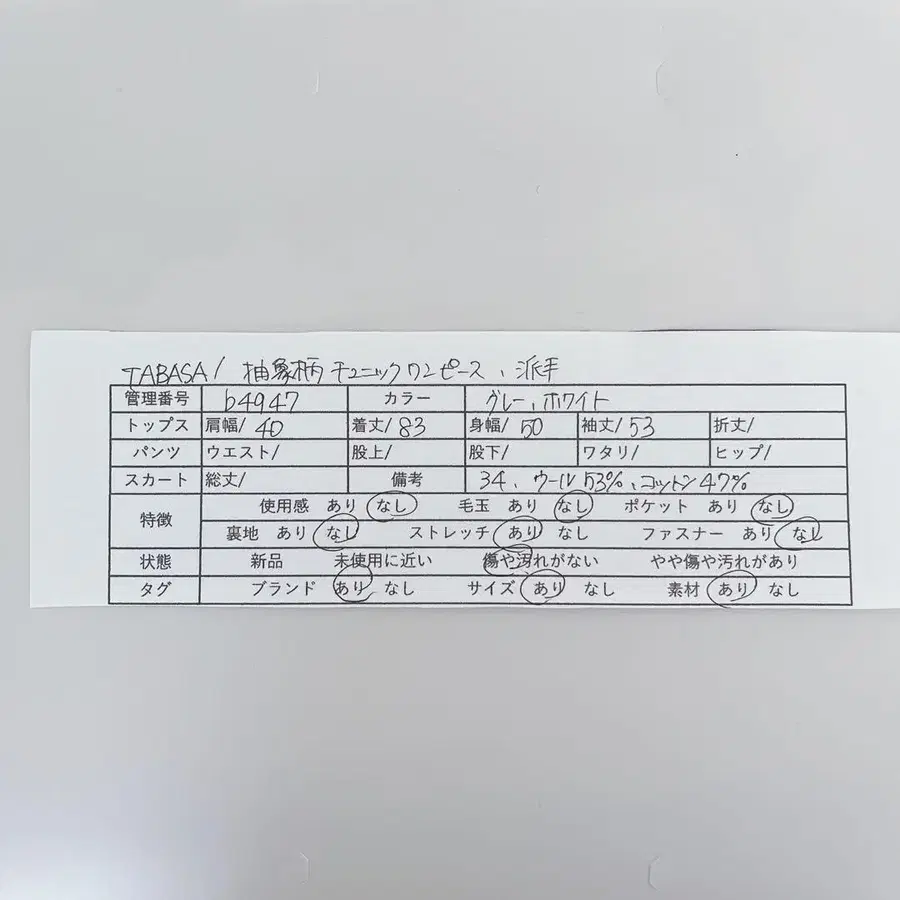 TABASA/ 抽象柄チュニックワンピース、派手
管理番号 b4947 カラー グレー、ホワイト
トップス 肩幅/ 40 着丈/ 83 身幅/ 50 袖丈/ 53 裄丈/
パンツ ウエスト/ 股上/ 股下/ ワタリ/ ヒップ/
スカート 総丈/ 備考 34、ウール53%、コットン47%
特徴 使用感 あり なし 毛玉 あり なし ポケット あり なし
裏地 あり なし ストレッチ あり なし ファスナー あり なし
状態 新品 未使用に近い 傷や汚れがない やや傷や汚れがあり
タグ ブランド あり なし サイズ あり なし 素材 あり なし